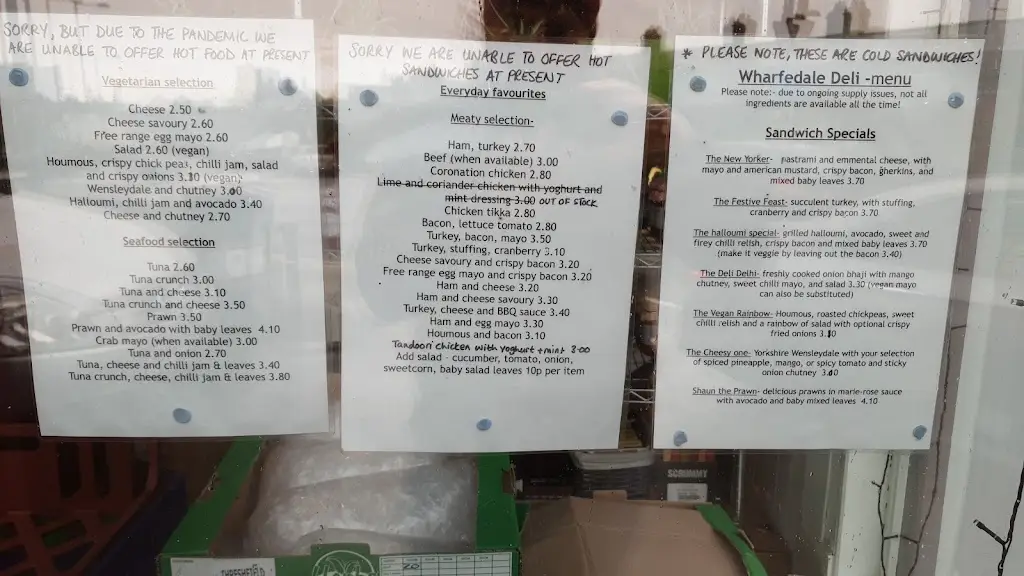 SORRY, BUT DUE TO THE PANDEMIC WE
ARE UNABLE TO OFFER HOT FOOD AT PRESENT
Vegetarian selection
Cheese 2.50
Cheese savoury 2.60
Free range egg mayo 2.60
Salad 2.60 (vegan)
Houmous, crispy chick peas, chilli jam, salad
and crispy onions 3.30 (vegan)
Wensleydale and chutney 3.00
Halloumi, chilli jam and avocado 3.40
Cheese and chutney 2.70
Seafood selection
Tuna 2.60
Tuna crunch 3.00
Tuna and cheese 3.10
Tuna crunch and cheese 3.50
Prawn 3.50
Prawn and avocado with baby leaves 4.10
Crab mayo (when available) 3.00
Tuna and onion 2.70
Tuna, cheese and chilli jam & leaves 3.40
Tuna crunch, cheese, chilli jam & leaves 3.80
SORRY WE ARE UNABLE TO OFFER HOT
SANDWICHES AT PRESENT
Everyday favourites
Meaty selection-
Ham, turkey 2.70
Beef (when available) 3.00
Coronation chicken 2.80
Lime and coriander chicken with yoghurt and
mint dressing 3.00 OUT OF STOCK
Chicken tikka 2.80
Bacon, lettuce tomato 2.80
Turkey, bacon, mayo 3.50
Turkey, stuffing, cranberry 3.10
Cheese savoury and crispy bacon 3.20
Free range egg mayo and crispy bacon 3.20
Ham and cheese 3.20
Ham and cheese savoury 3.30
Turkey, cheese and BBQ sauce 3.40
Ham and egg mayo 3.30
Houmous and bacon 3.10
Tandoori chicken with yoghurt + mint 3.00
Add salad - cucumber, tomato, onion,
sweetcorn, baby salad leaves 10p per item
* PLEASE NOTE, THESE ARE COLD SANDWICHES!
Wharfedale Deli -menu
Please note:- due to ongoing supply issues, not all
ingredients are available all the time!
Sandwich Specials
The New Yorker- pastrami and emmental cheese, with
mayo and american mustard, crispy bacon, gherkins, and
mixed baby leaves 3.70
The Festive Feast- succulent turkey, with stuffing,
cranberry and crispy bacon 3.70
The halloumi special- grilled halloumi, avocado, sweet and
firey chilli relish, crispy bacon and mixed baby leaves 3.70
(make it veggie by leaving out the bacon 3.40)
The Deli Delhi- freshly cooked onion bhaji with mango
chutney, sweet chilli mayo, and salad 3.30 (vegan mayo
can also be substituted)
The Vegan Rainbow- Houmous, roasted chickpeas, sweet
chilli relish and a rainbow of salad with optional crispy
fried onions 3.30
The Cheesy one- Yorkshire Wensleydale with your selection
of spiced pineapple, mango, or spicy tomato and sticky
onion chutney 3.00
Shaun the Prawn- delicious prawns in marie-rose sauce
with avocado and baby mixed leaves 4.10
SCRUMMY
THRESHFIELD
20